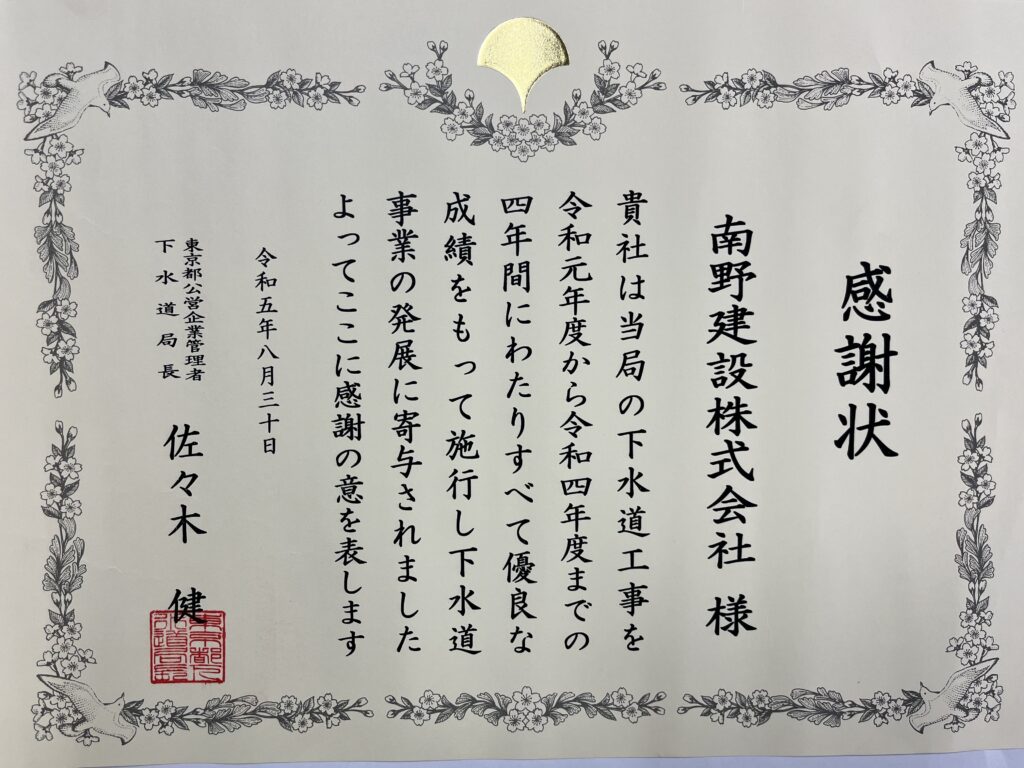 感謝状
南野建設株式会社 様
貴社は当局の下水道工事を
令和元年度から令和四年度までの
四年間にわたりすべて優良な
成績をもって施行し下水道
事業の発展に寄与されました
よってここに感謝の意を表します
令和五年八月三十日
東京都公営企業管理者
下水道局長
佐々木 健